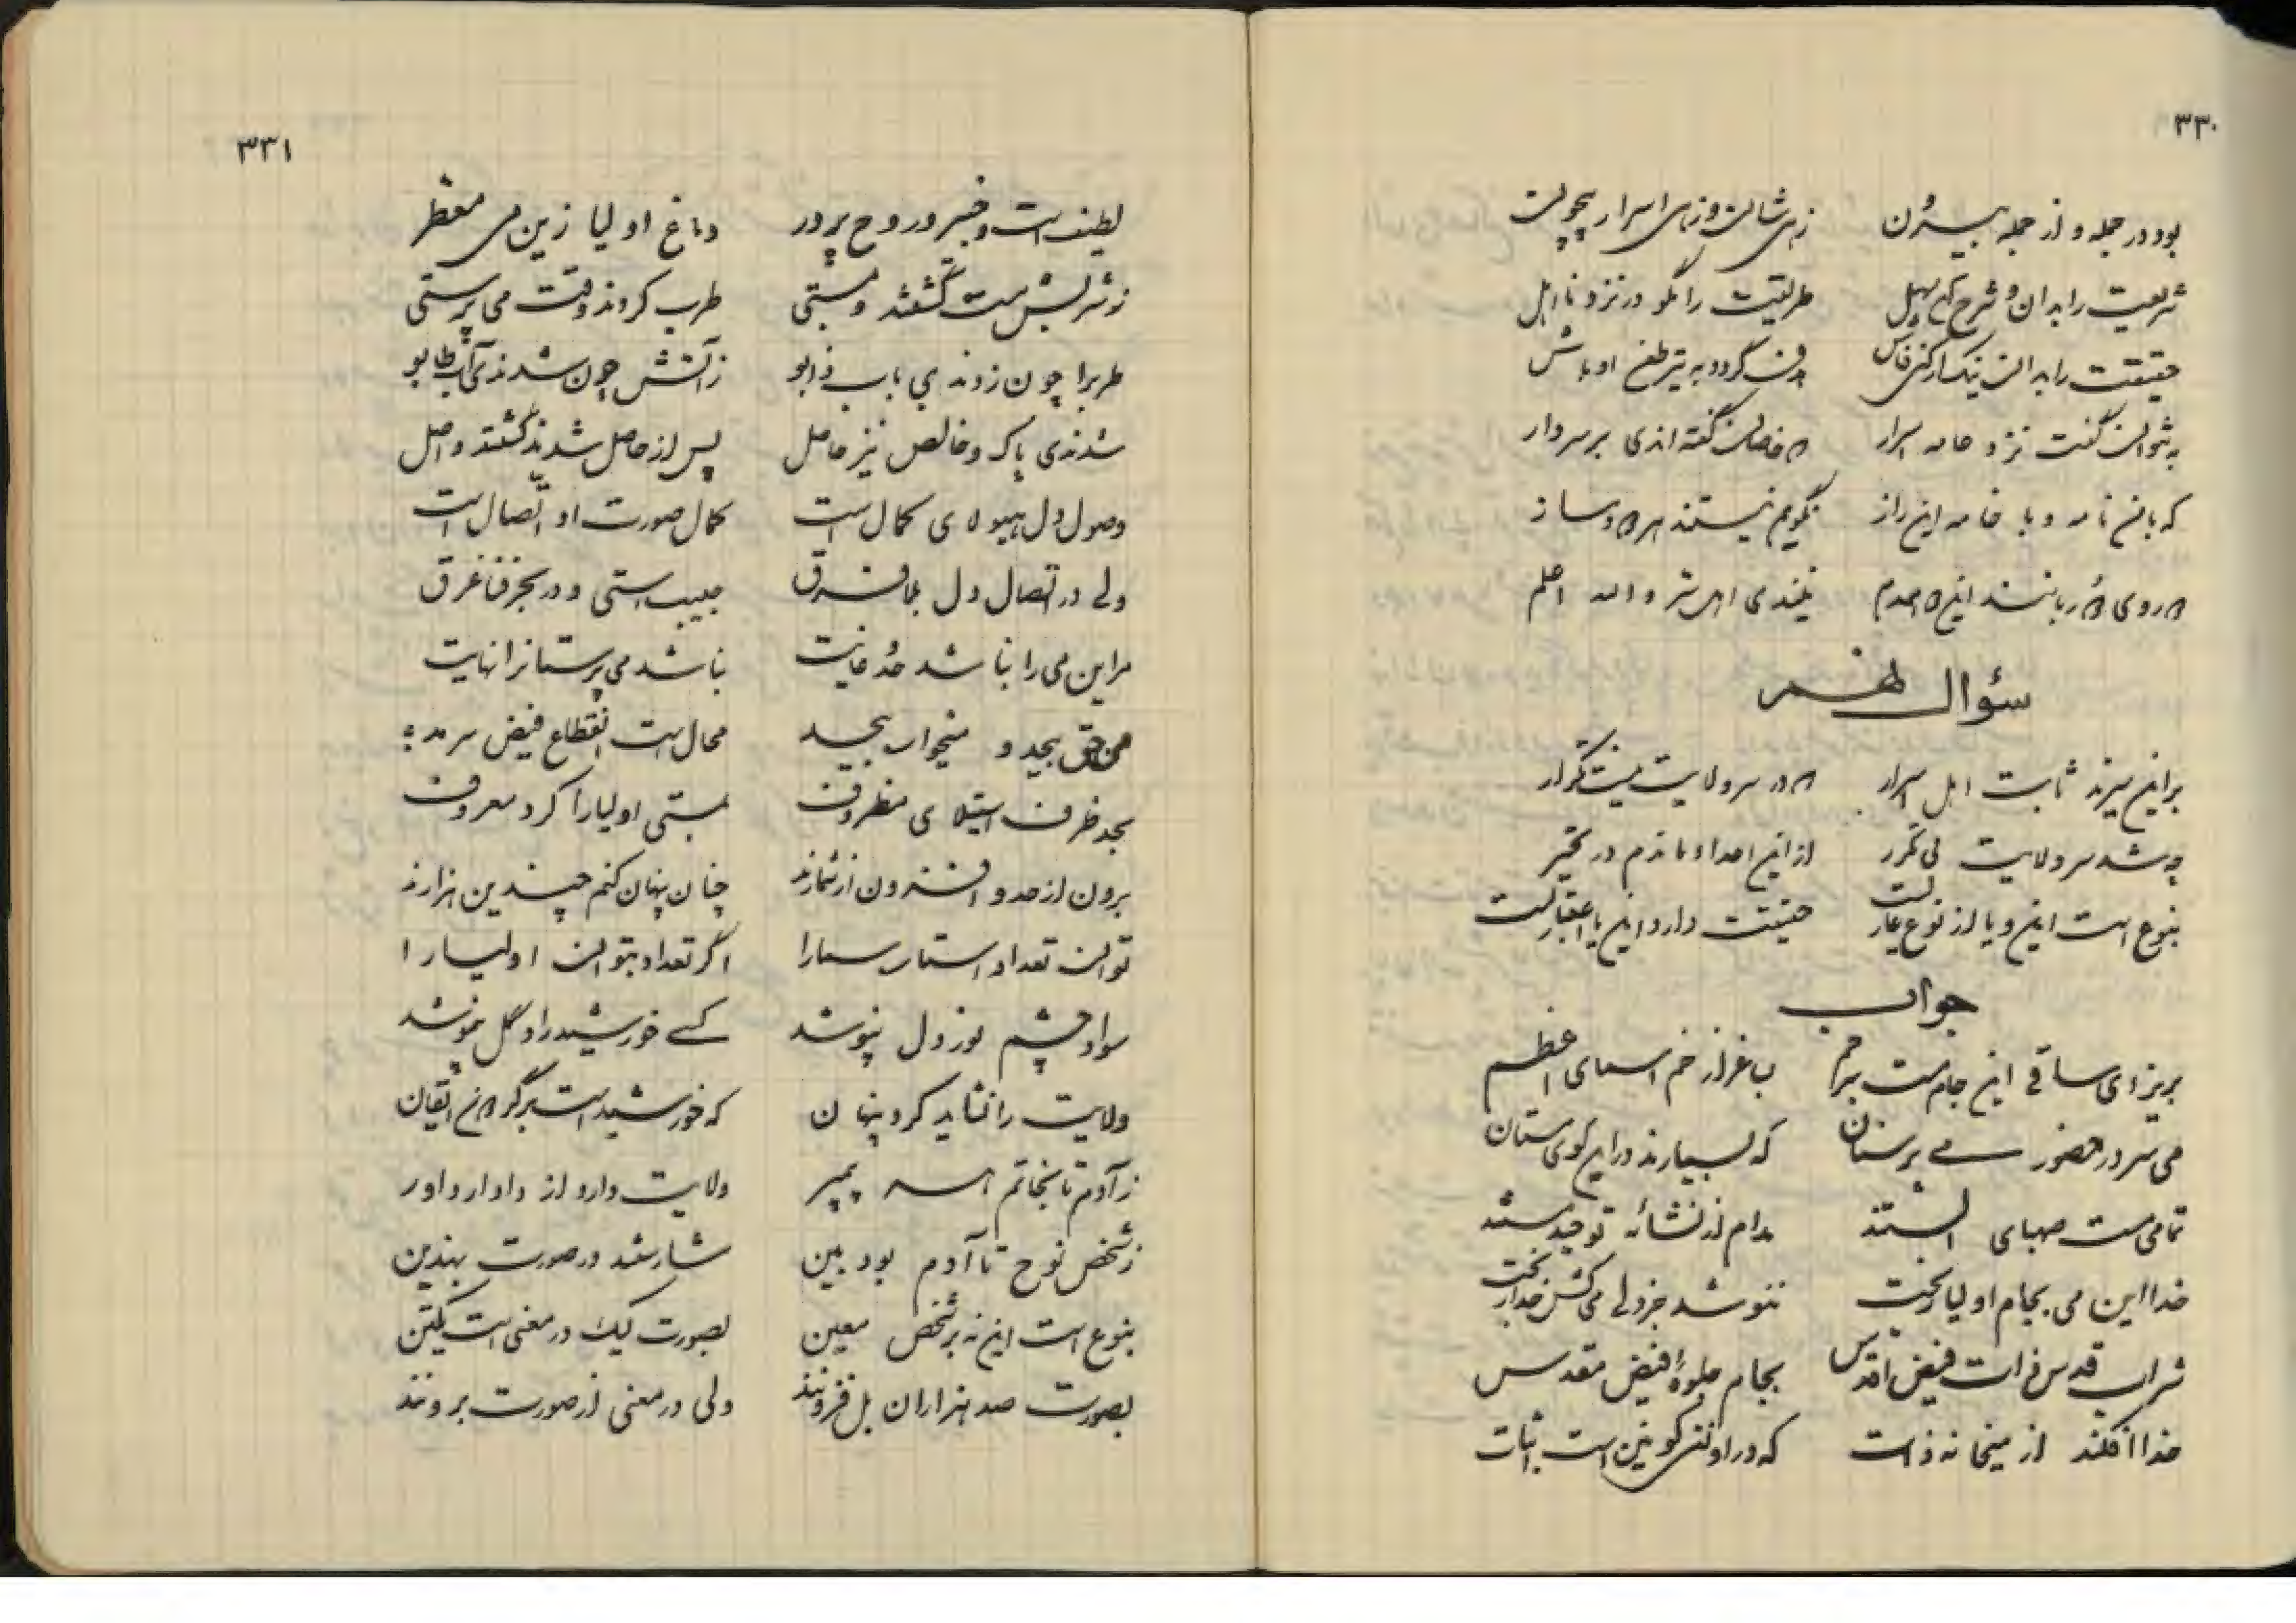 ۳۳۰
بود در جمله و از جمله بیرون زهی شان و زهی اسرار بیچون
شریعت را بدان و شرح کن سهل طریقت را مگو در نزد نااهل
حقیقت را بدان نیک ار کنی فاش هدف گردد به تیر طعن اوباش
به نتوان گفت نزد عامه اسرار گفته اندی بر سر دار
که با نامه و با خامه این راز نگویم نیستند همراه و دمساز
اعلم
سؤال
بر این سرند ثابت اهل اسرار که در سر ولایت نیست تکرار
چه شد سر ولایت بی تکرر از این اعداد ماندم در تحیر
بنوع است این و یا از نوع عاریست حقیقت دارد این یا اعتباریست
جواب
بریز ای ساقی این جام است بساغر از خم اسمای اعظم
می در حضور می پرستان که بسیارند در این کوی مستان
تمامی مست صهبای الستند مدام از نشائه توحید مستند
خدا این می بجام اولیا ریخت ننوشد جز دلی
شراب قدس ذات فیض اقدس بجام جلوهٔ فیض مقدس
خدا افکند از میخانه ذات که در او نفی کونین است اثبات
۳۳۱
لطیف است و خبیر و روح پرور دماغ اولیا زین می معطر
ز شربش مست گشتند و بمستی طرب کردند وقت می پرستی
طرب را چون زدندی باب ز آتش چون شدندی آب
شدندی پاک و خالص نیز حاصل پس از حاصل شدند گشتند واصل
وصول دل هیولای کمال است کمال صورت او اتصال است
ولی در اتصال دل بما فرق حبیب استی و در بحر فنا غرق
مر این می را نباشد حد و غایت نباشد می پرستانرا نهایت
می حق بیحد و میخوار بیحد محال است انقطاع فیض سرمد
بحد ظرف استیلای مظروف بمستی اولیا را کرد معروف
برون از حد و افزون از شمارند چنان پنهان کنم چندین هزارند
توان تعداد استار سما را اگر تعداد بتوان اولیا را
سواد چشم نور دل نپوشد کسی خورشید را در گل نپوشد
ولایت را نشاید کرد پنهان که خورشید است بر گردون ایقان
ز آدم تا بخاتم هر سه پیمبر ولایت دارد از دادار داور
ز شخص نوح تا آدم بود بین شارشد در صورت بهندین
بنوع است این نه بر شخص معین بصورت لیک در معنی است یکتن
بصورت صد هزاران بل فزونند ولی در معنی از صورت برونند